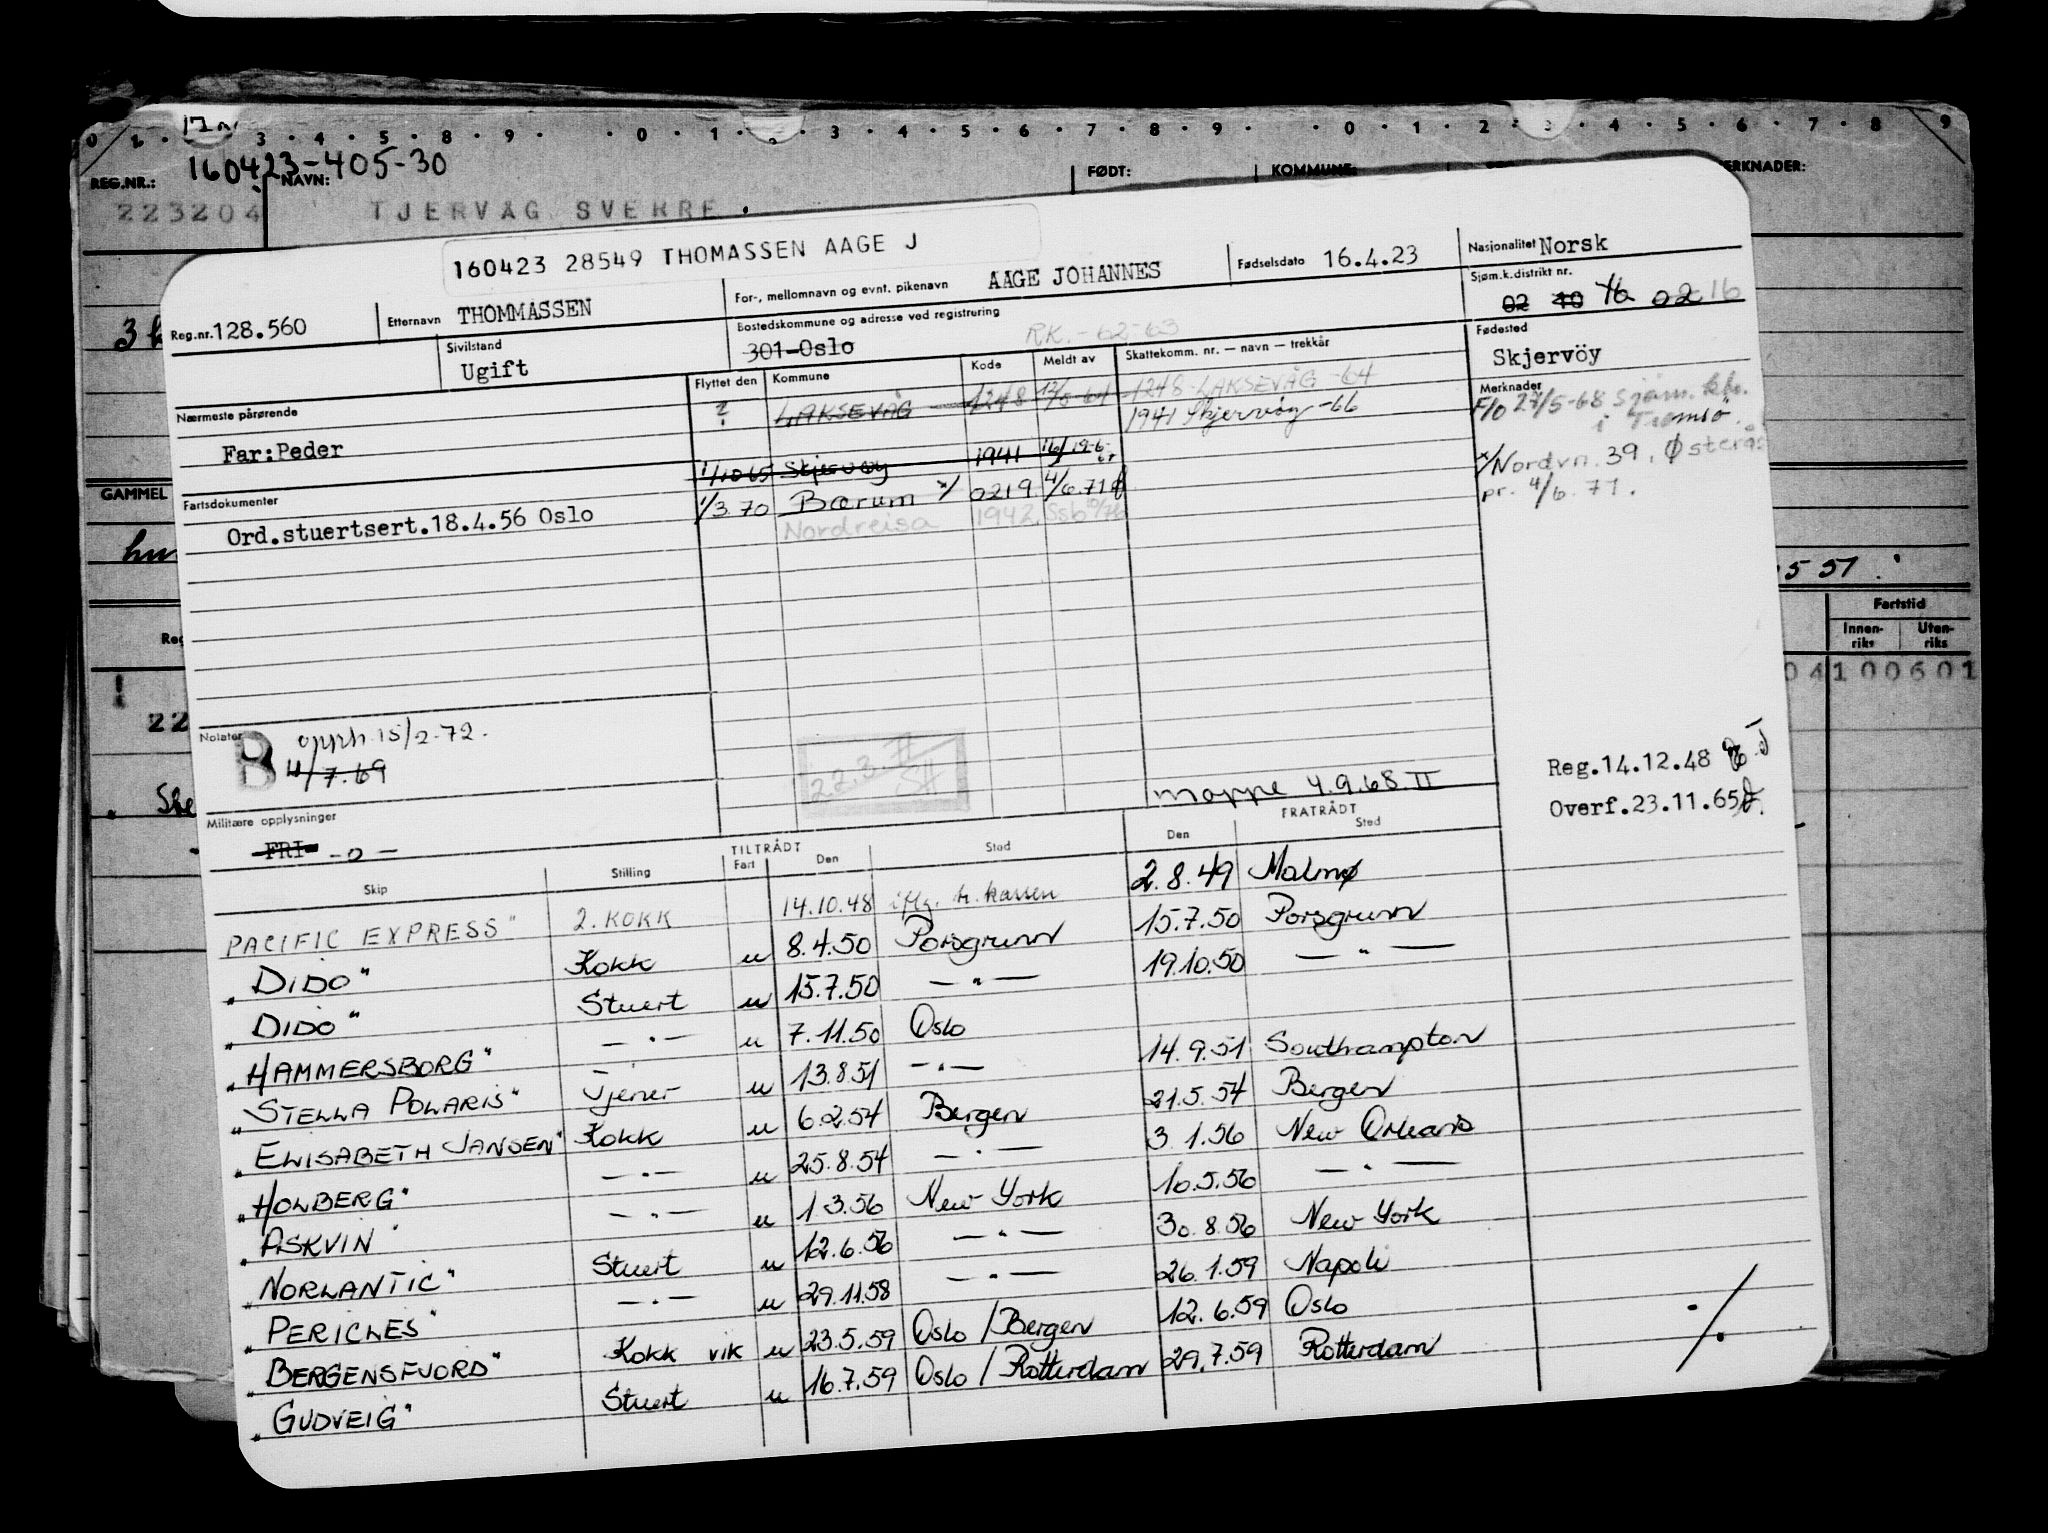 160423-405-30
REG.NR.: NAVN: FØDT: KOMMUNE: ERKNADER:
223204 TJERVÅG SVERRE
160423 28549 THOMASSEN AAGE J
Reg.nr. 128.560 Etternavn THOMMASSEN For-, mellomnavn og evnt. pikenavn AAGE JOHANNES Fødselsdato 16.4.23 Nasjonalitet Norsk
Sjøm.k.distrikt nr. 02 10 16 02 16
Sivilstand Ugift
Bostedskommune og adresse ved registrering
301-Oslo RK. -62-63
Fødested
Skjervöy
Nærmeste pårørende
Far:Peder
Flyttet den Kommune Kode Meldt av Skattekomm. nr. — navn — trekkår
? LAKSEVÅG 1248 1248-LAKSEVÅG -64
1941 Skjervøy -66
1/10 65 Skjervøy 1941
1/3.70 Bærum x/ 0219 4/6.71
Nordreisa 1942. Ssb
Merknader
F/O 27/5-68 Sjøm.
i Tromsø.
x/Nordvn. 39, Østerås
pr. 4/6. 71.
Fartsdokumenter
Ord.stuertsert.18.4.56 Oslo
GAMMEL
5 51.
Fartstid
Innen-riks Uten-riks
04 100601
Notater
B opph. 15/2-72.
4/7.69
22.3. II
SH
moppe 4.9.68 II
Reg.14.12.48
Overf.23.11.65
Militære opplysninger
FRI -0-
TILTRÅDT FRATRÅDT
Skip Stilling Fart Den Sted Den Sted
PACIFIC EXPRESS" 2. KOKK 14.10.48 iflg. h. kassen 2.8.49 Malmø
"DIDO" Kokk u 8.4.50 Porsgrunn 15.7.50 Porsgrunn
"DIDO" Stuert u 15.7.50 — " — 19.10.50 — " —
"HAMMERSBORG" — " — u 7.11.50 Oslo
"STELLA POLARIS" Tjener u 13.8.51 — " — 14.9.51 Southampton
"ELISABETH JANSEN" Kokk u 6.2.54 Bergen 21.5.54 Bergen
"HOLBERG" — " — u 25.8.54 — " — 3.1.56 New Orleans
"ASKVIN" — " — u 1.3.56 New York 10.5.56 — " —
"NORLANTIC" Stuert u 12.6.56 — " — 30.8.56 New York
"PERICLES" — " — u 29.11.58 — " — 26.1.59 Napoli
"BERGENSFJORD" Kokk vik u 23.5.59 Oslo / Bergen 12.6.59 Oslo
"GUDVEIG" Stuert u 16.7.59 Oslo / Rotterdam 29.7.59 Rotterdam
./.